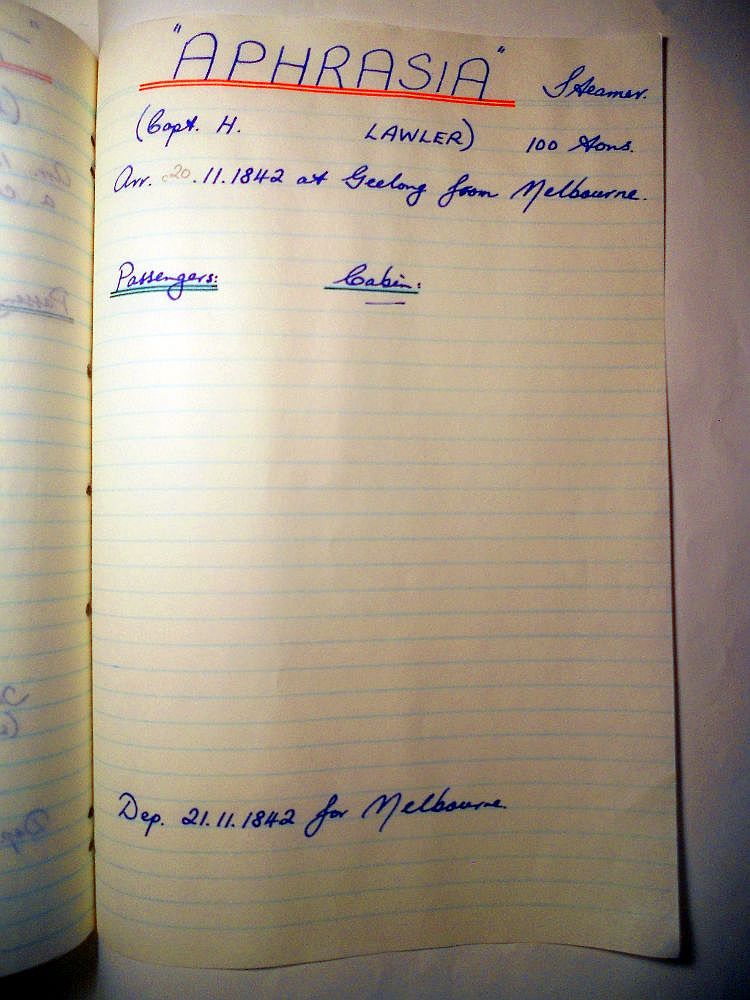 "APHRASIA" Steamer.
(Capt. H. LAWLER) 100 tons.
Arr. c20.11.1842 at Geelong from Melbourne.
Passengers: Cabin:
Dep. 21.11.1842 for Melbourne.